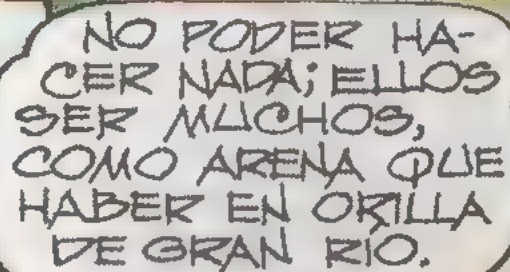 NO PODER HA-
CER NADA; ELLOS
SER MUCHOS,
COMO ARENA QUE
HABER EN ORILLA
DE GRAN RÍO.